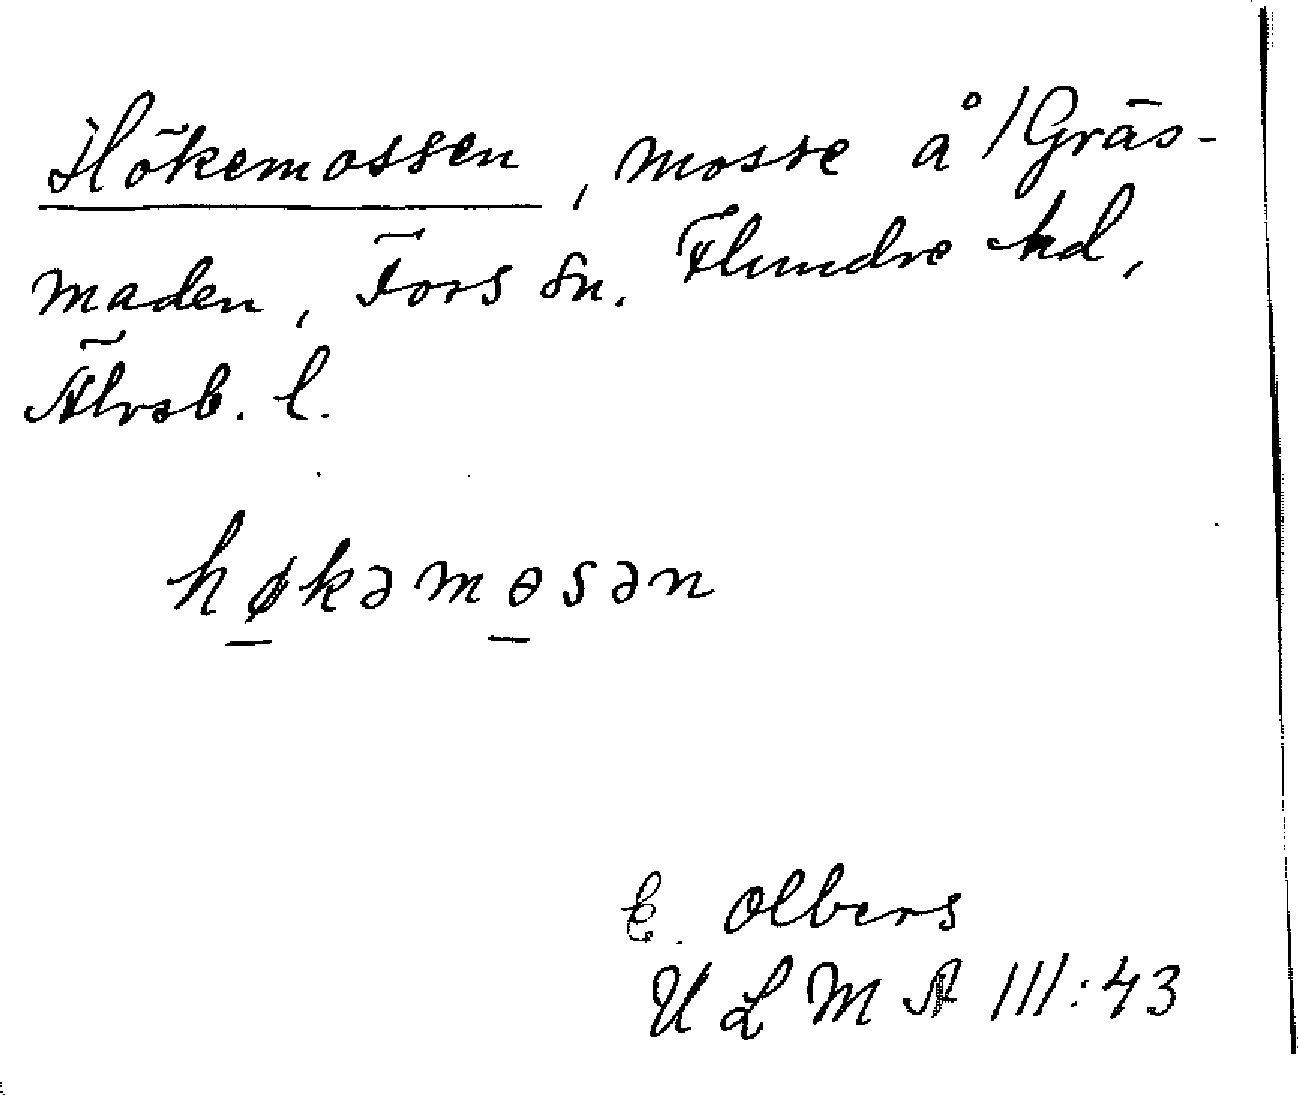 Hökemossen, mosse å /Gräs-
maden, Fors sn. Flundre hd,
Älvsb. l.
høkəmɵsən
E. Olbers
ULMA III:43